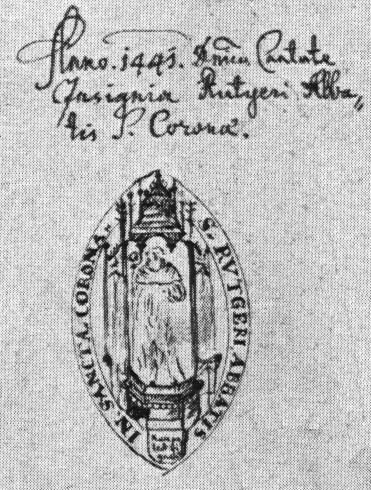 Anno. 1441. Dnica Cantate
Insignia Rutgeri Abba„
tis S. Corona.
S. RVTGERI ABBATIS
IN. SANCTA. CORONA.